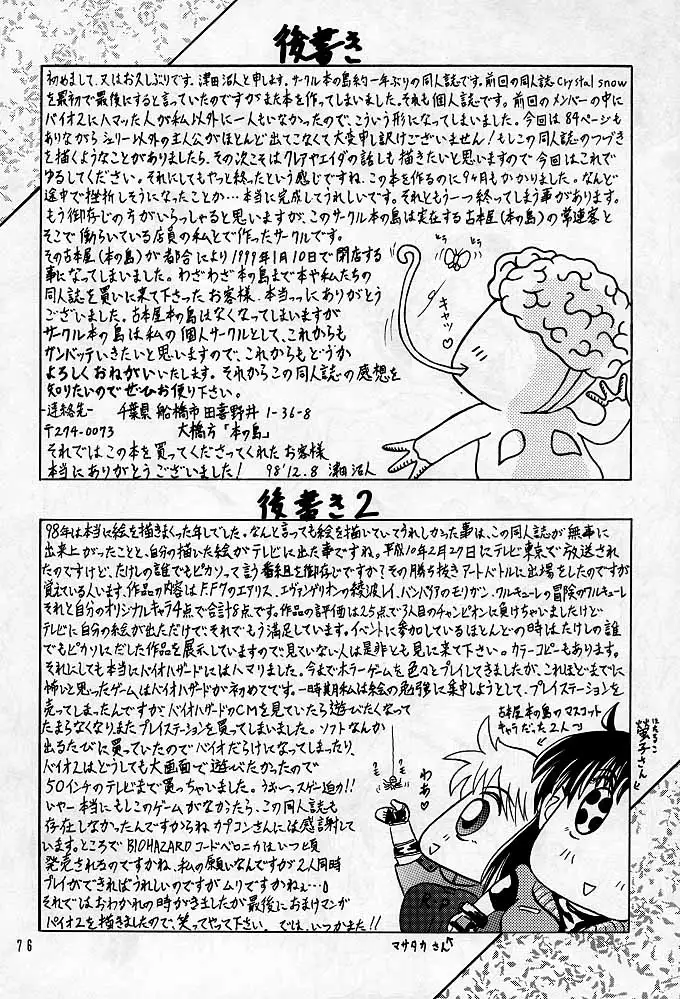 後書き
初めまして、又はお久しぶりです。澤田沼人と申します。サークル本の島約一年ぶりの同人誌です。前回の同人誌Crystal snow
を最初で最後にすると言っていたのですがまた本を作ってしまいました。それも個人誌です。前回のメンバーの中に
バイオ2にハマった人が私以外に一人もいなかったので、こういう形になってしまいました。今回は84ページも
ありながらシェリー以外の主人公がほとんど出てこなくて大変申し訳ございません!もしこの同人誌のつづき
を描くようなことがありましたら、その次こそはクレアやエイダの話しも描きたいと思いますので今回はこれで
ゆるしてください。それにしてもやっと終ったという感じですね、この本を作るのに9ヶ月もかかりました。なんど
途中で挫折しそうになったことか…本当に完成してうれしいです。それともう一つ終ってしまう事があります。
もう御存じの方がいらっしゃると思いますが、このサークル本の島は実在する古本屋(本の島)の常連客と
そこで働らいている店員の私とで作ったサークルです。
その古本屋(本の島)が都合により1999年1月10日で閉店する
事になってしまいました。わざわざ本の島まで本や私たちの
同人誌を買いに来て下さったお客様、本当っっにありがとう
ございました。古本屋本の島はなくなってしまいますが
サークル本の島は私の個人サークルとして、これからも
ガンバッテいきたいと思いますので、これからもどうか
よろしくおねがいいたします。それからこの同人誌の感想を
知りたいのでぜひお便り下さい。
-連絡先- 千葉県 船橋市 田喜野井 1-36-8
〒274-0073 大橋方「本の島」
それではこの本を買ってくださってくれたお客様
本当にありがとうございました! 98'12.8 澤田沼人
とぅ
とぅ
キャッ♡
後書き2
98年は本当に絵を描きまくった年しでした。なんと言っても絵を描いていてうれしかった事は、この同人誌が無事に
出来上がったことと、自分の描いた絵がテレビに出た事ですね。平成10年2月27日にテレビ東京で放送され
たのですけど、たけしの誰でもピカソって言う番組を御存じですか?その勝ち抜きアートバトルに出場をしたのですが
覚えている人います。作品の内容はF.F7のエアリス、エヴァンゲリオンの綾波レイ、バンパイアのモリガン、ワルキューレの冒険のワルキューレ
それと自分のオリジナルキャラ4点で合計8点です。作品の評価は25点で3人目のチャンピオンに負けちゃいましたけど
テレビに自分の絵が出ただけで、それでもう満足しています。イベントに参加しているほとんどの時はたけしの誰
でもピカソにだした作品を展示していますので、見ていない人は是非とも見に来て下さい。カラーコピーもあります。
それにしても本当にバイオハザードにはハマりました。今までホラーゲームを色々とプレイしてきましたが、これほどまでに
怖いと思ったゲームはバイオハザードが初めてです。一時期私は絵の勉強に集中しようとして、プレイステーションを
売ってしまったんですが、バイオハザードのCMを見ていたら遊びたくなって
たまらなくなりまたプレイステーションを買ってしまいました。ソフトなんか
出るたびに買っていたのでバイオだらけになってしまったり、
バイオ2はどうしても大画面で遊びたかったので
50インチのテレビまで買っちゃいました。うわーっスゲー迫力!!
いやー本当にもしこのゲームがなかったら、この同人誌も
存在しなかったんですからねカプコンさんには感謝して
います。ところでBIOHAZARDコードベロニカはいつ頃
発売されるのですかね、私の願いなんですが2人同時
プレイができればうれしいのですがムリですかねぇ…
それではおわかれの時がきましたが最後におまけマンガ
バイオ2を描きましたので、笑ってやって下さい。では、いつかまた!!
古本屋本の島のマスコット
キャラだった2人
わぁ♡
螢子さん
マサタカさん
76